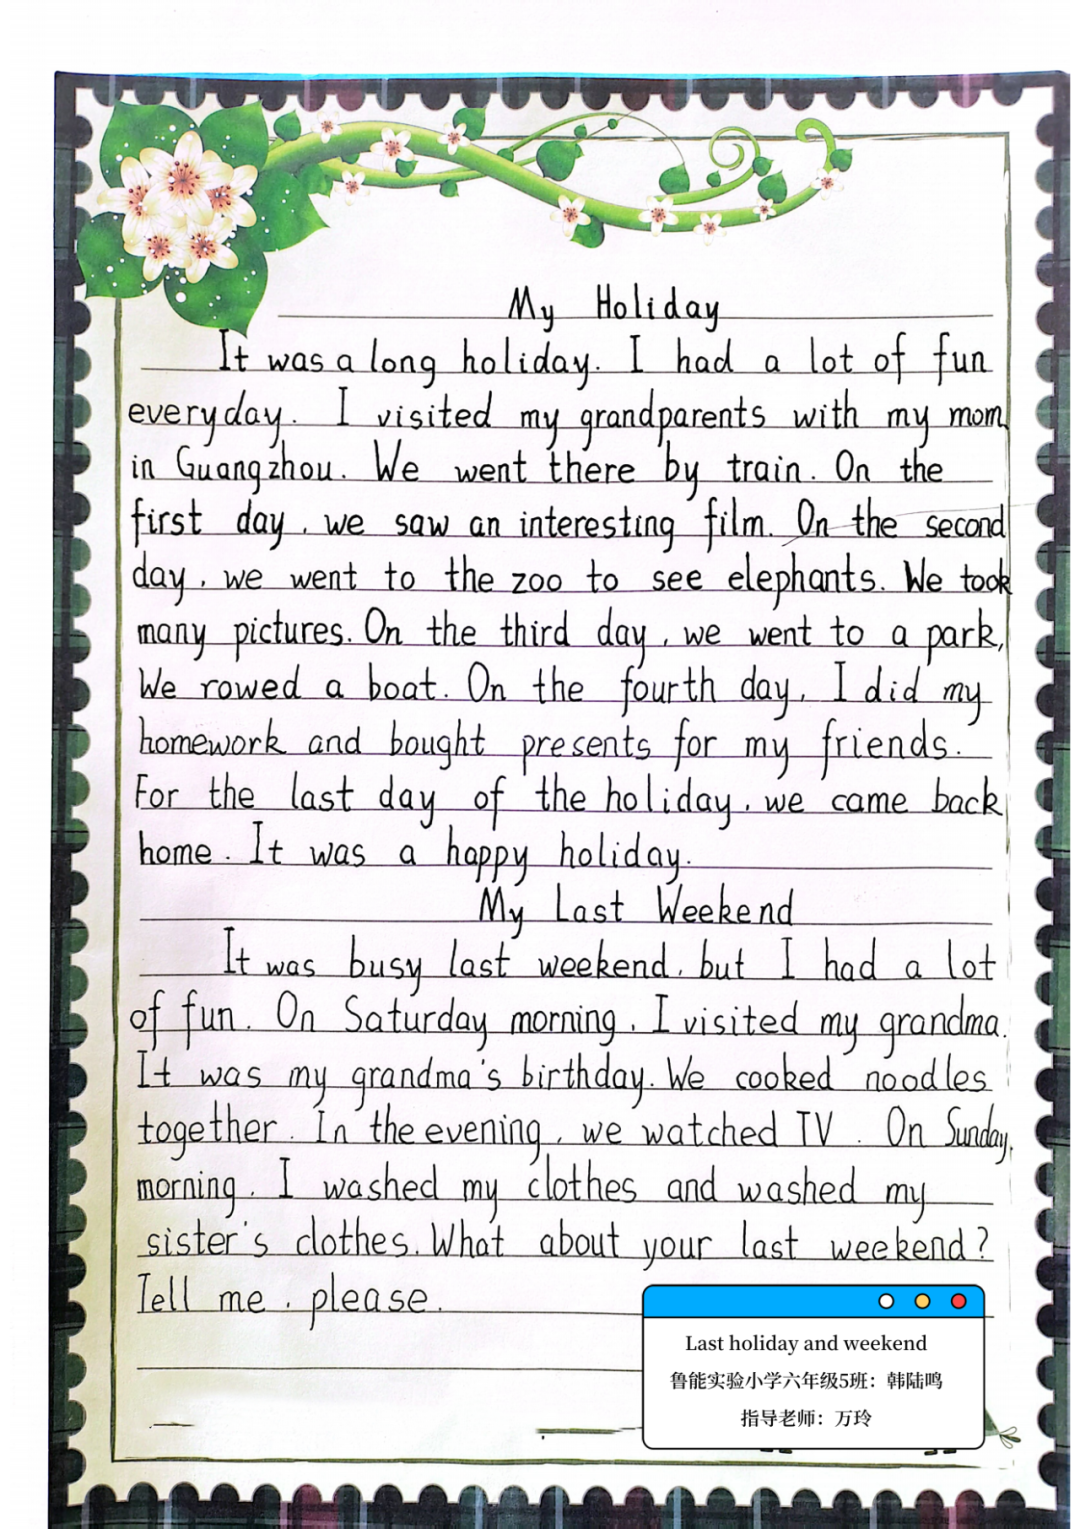 My Holiday
It was a long holiday. I had a lot of fun
everyday. I visited my grandparents with my mom
in Guangzhou. We went there by train. On the
first day, we saw an interesting film. On the second
day, we went to the zoo to see elephants. We took
many pictures. On the third day, we went to a park,
We rowed a boat. On the fourth day, I did my
homework and bought presents for my friends.
For the last day of the holiday, we came back
home. It was a happy holiday.
My Last Weekend
It was busy last weekend, but I had a lot
of fun. On Saturday morning, I visited my grandma.
It was my grandma's birthday. We cooked noodles
together. In the evening, we watched TV. On Sunday
morning, I washed my clothes and washed my
sister's clothes. What about your last weekend?
Tell me, please.
Last holiday and weekend
鲁能实验小学六年级5班：韩陆鸣
指导老师：万玲